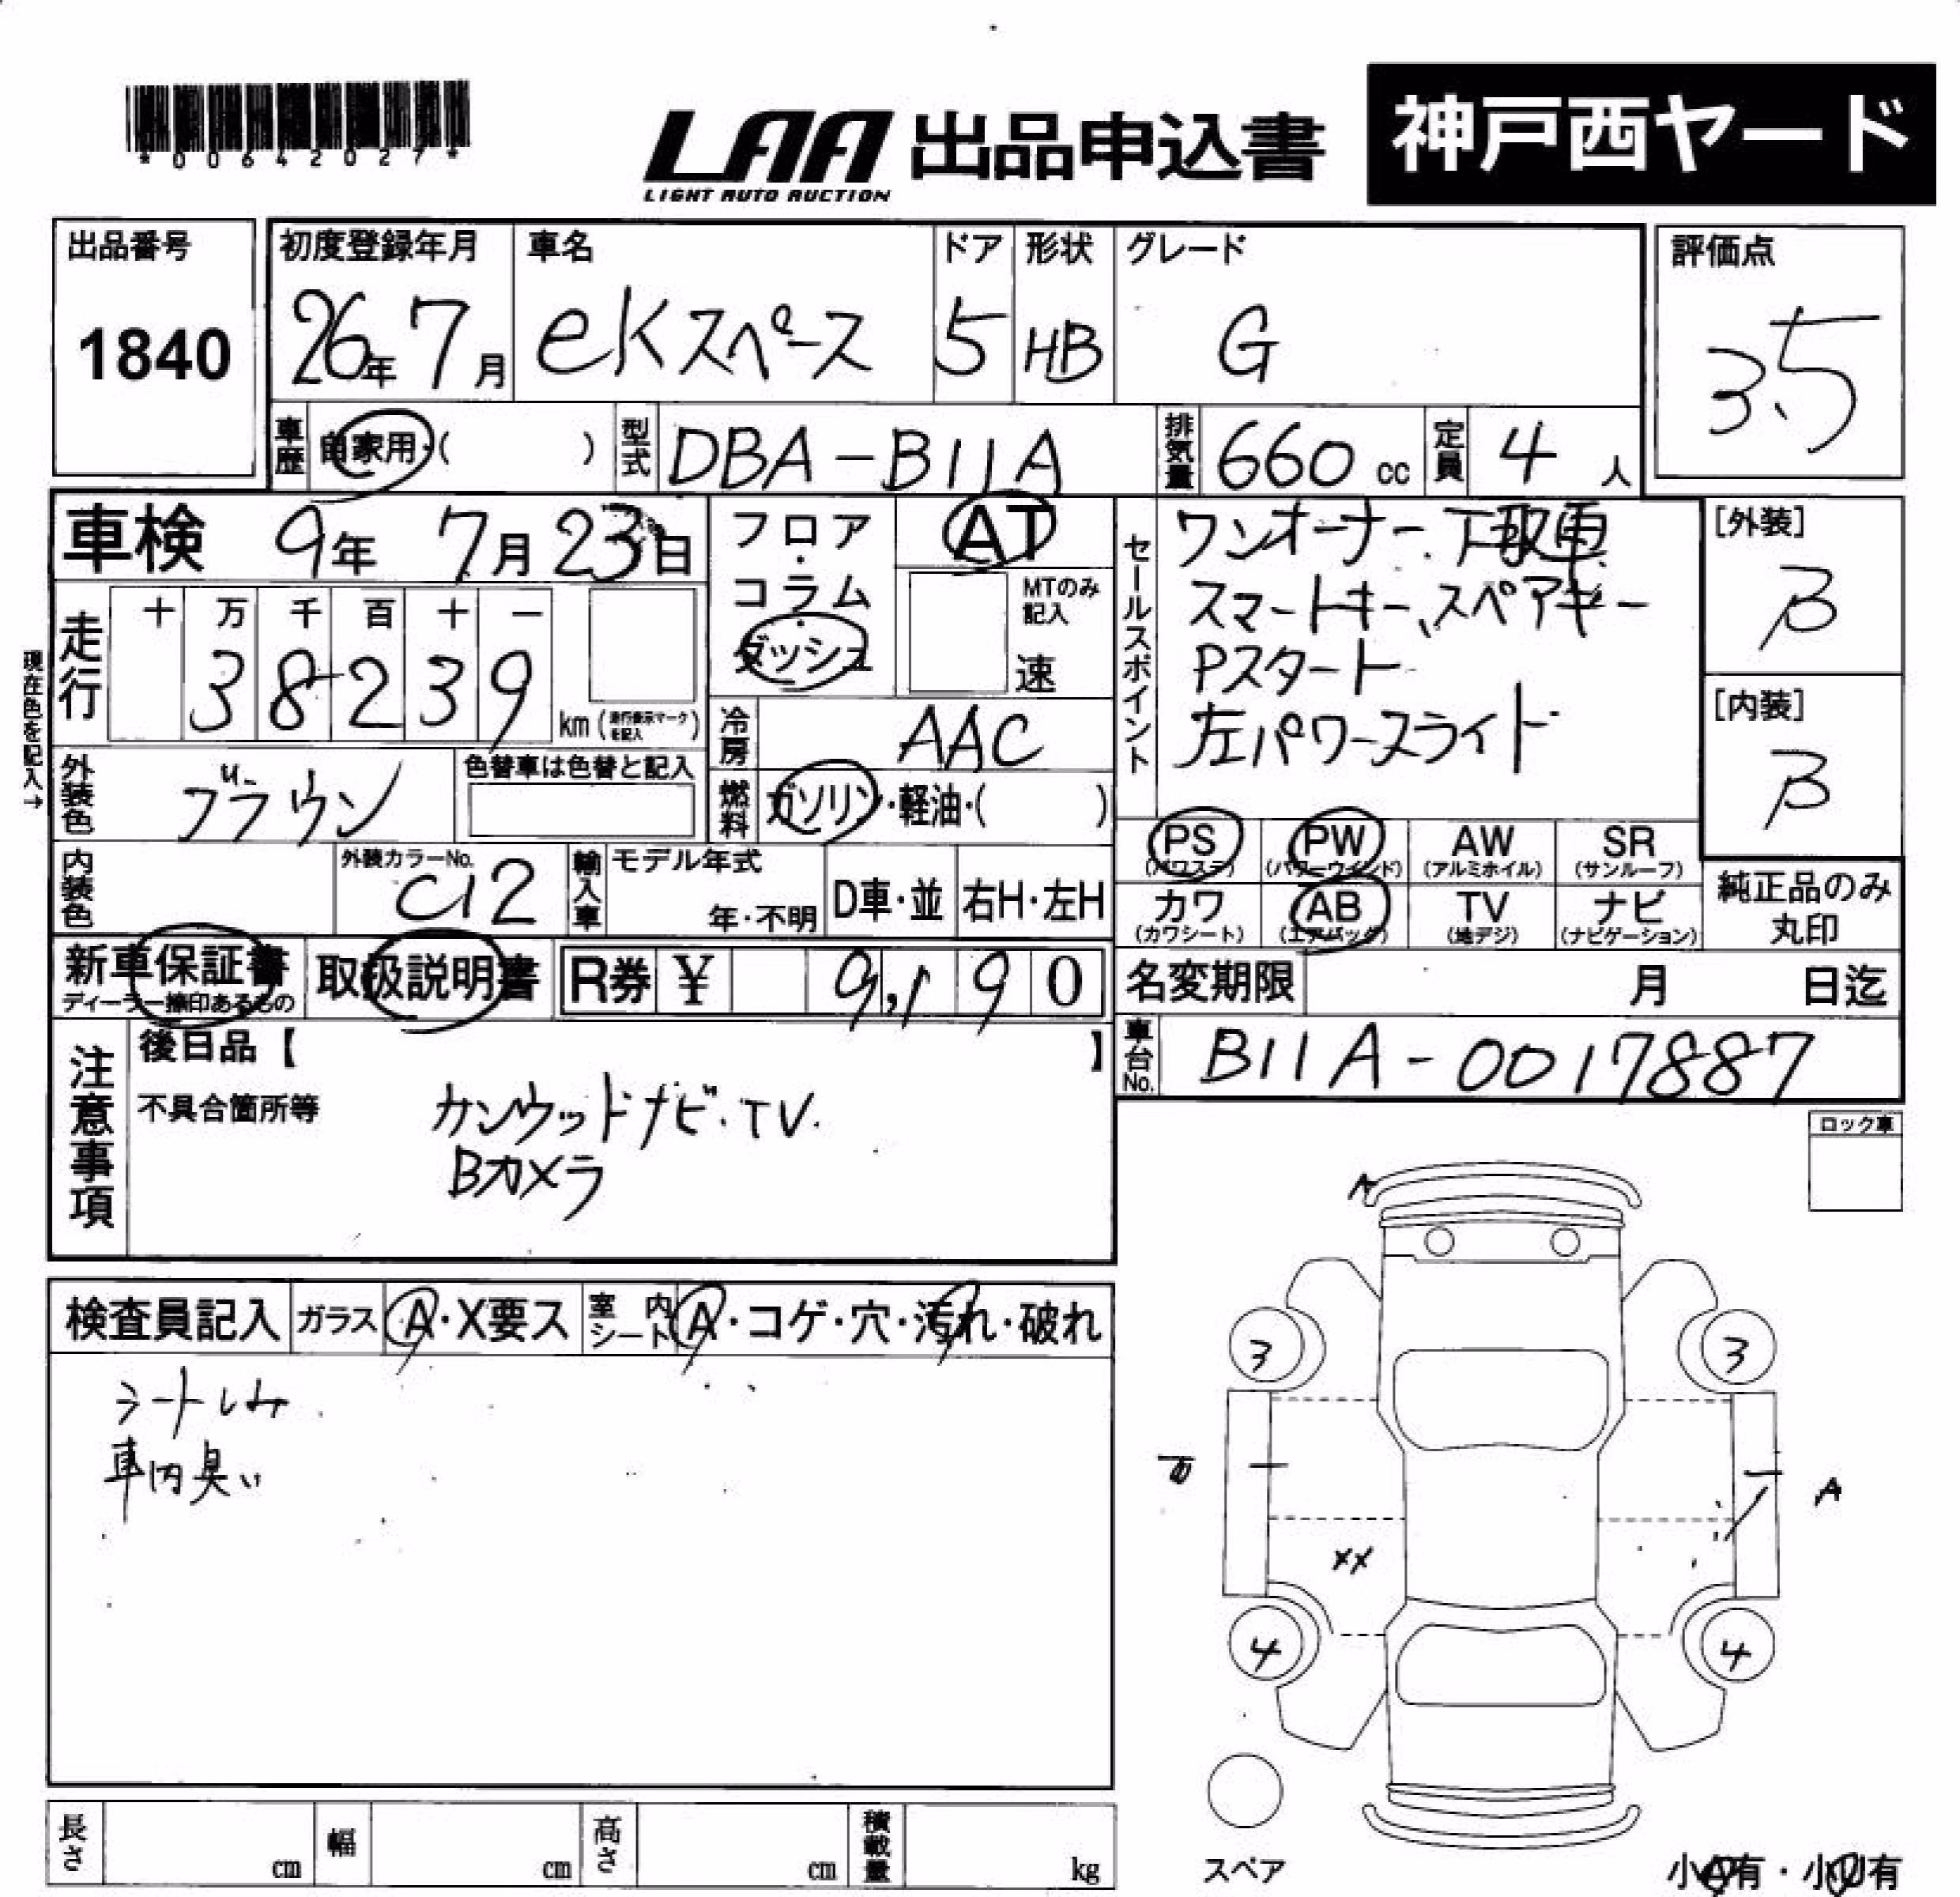 *00642027*
LAA 出品申込書 神戸西ヤード
LIGHT AUTO AUCTION
出品番号 初度登録年月 車名 ドア 形状 グレード 評価点
1840 26年7月 eKスペース 5 HB G 3.5
車歴 自家用・( ) 型式 DBA-B11A 排気量 660 cc 定員 4 人
車検 9年 7月 23日 フロア・コラム・ダッシュ AT
MTのみ記入 速
セールスポイント
ワンオーナー、下取車
スマートキー、スペアキー
Pスタート
左パワースライド
[外装]
B
[内装]
B
現在色を記入→
走行 十 万 千 百 十 一
38239 km (走行表示マークを記入)
冷房 AAC
外装色 ブラウン 色替車は色替と記入
燃料 ガソリン・軽油・( )
内装色 外装カラーNo. C12 輸入車 モデル年式 年・不明 D車・並 右H・左H
PS (パワステ) PW (パワーウインド) AW (アルミホイル) SR (サンルーフ)
カワ (カワシート) AB (エアバッグ) TV (地デジ) ナビ (ナビゲーション)
純正品のみ
丸印
新車保証書 取扱説明書 R券 ¥ 9,190
ディーラー捺印あるもの
名変期限 月 日迄
車台No. B11A-0017887
注意事項
後日品【 】
不具合箇所等
カンウッドナビ・TV.
Bカメラ
ロック車
検査員記入 ガラス A・X要ス 室内シート A・コゲ・穴・汚れ・破れ
シートしみ
車内臭い
A
3 3
A
XX
4 4
スペア
長さ cm 幅 cm 高さ cm 積載量 kg
小A有・小U有